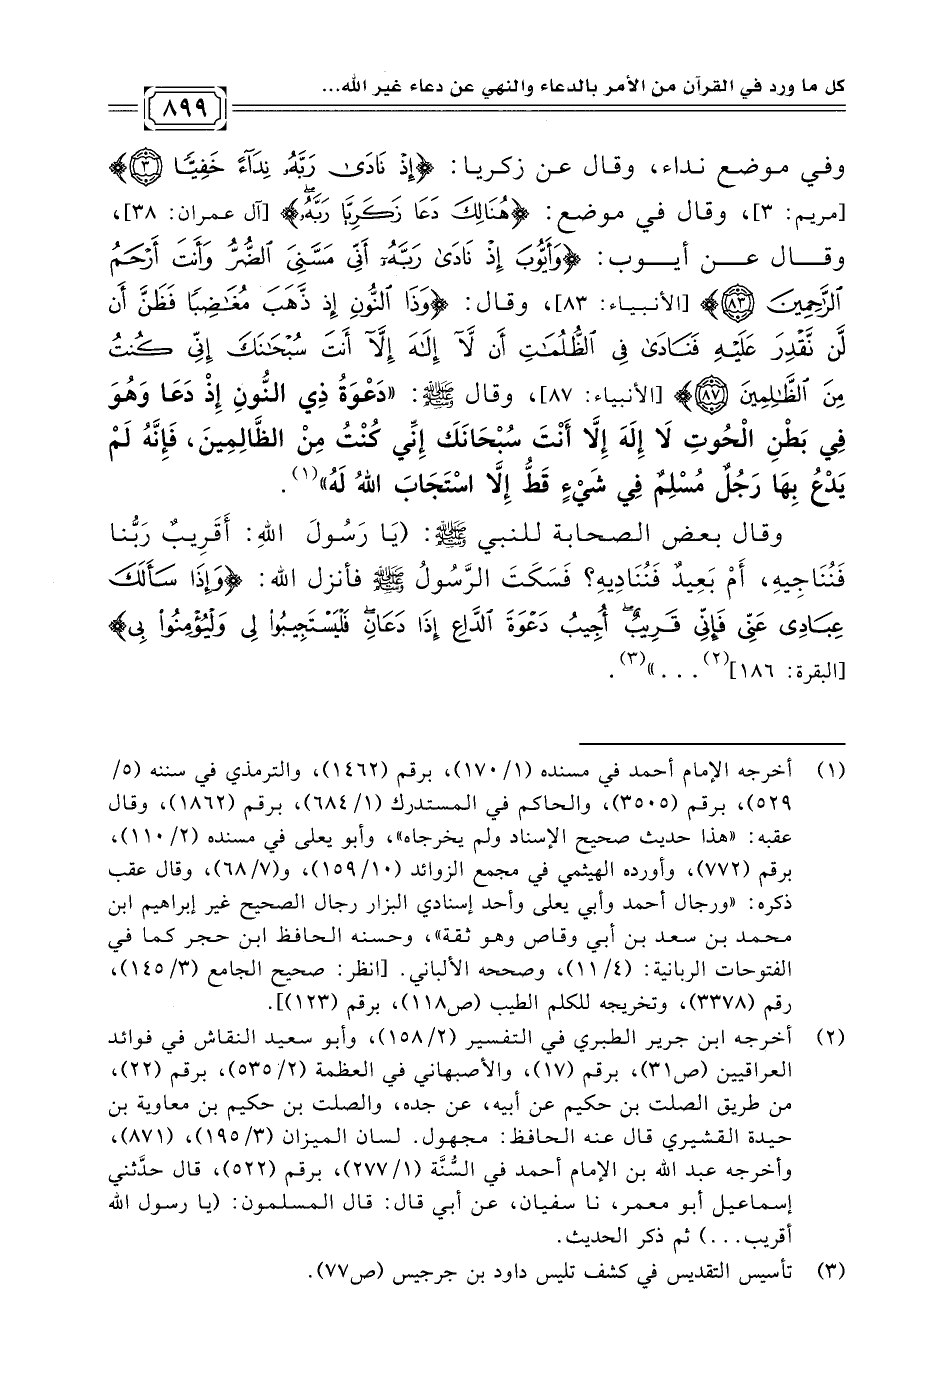 كل ما ورد في القرآن من الأمر بالدعاء والنهي عن دعاء غير الله...
٨٩٩
وفي موضع نداء، وقال عن زكريا: ﴿إِذْ نَادَىٰ رَبَّهُۥ نِدَآءً خَفِيًّا ٣﴾
[مريم: ٣]، وقال في موضع: ﴿هُنَالِكَ دَعَا زَكَرِيَّا رَبَّهُۥۖ﴾ [آل عمران: ٣٨]،
وقال عن أيوب: ﴿وَأَيُّوبَ إِذْ نَادَىٰ رَبَّهُۥٓ أَنِّى مَسَّنِىَ ٱلضُّرُّ وَأَنتَ أَرْحَمُ
ٱلرَّٰحِمِينَ ٨٣﴾ [الأنبياء: ٨٣]، وقال: ﴿وَذَا ٱلنُّونِ إِذ ذَّهَبَ مُغَٰضِبًا فَظَنَّ أَن
لَّن نَّقْدِرَ عَلَيْهِ فَنَادَىٰ فِى ٱلظُّلُمَٰتِ أَن لَّآ إِلَٰهَ إِلَّآ أَنتَ سُبْحَٰنَكَ إِنِّى كُنتُ
مِنَ ٱلظَّٰلِمِينَ ٨٧﴾ [الأنبياء: ٨٧]، وقال ﷺ: «دَعْوَةُ ذِي النُّونِ إِذْ دَعَا وَهُوَ
فِي بَطْنِ الْحُوتِ لَا إِلَهَ إِلَّا أَنْتَ سُبْحَانَكَ إِنِّي كُنْتُ مِنْ الظَّالِمِينَ، فَإِنَّهُ لَمْ
يَدْعُ بِهَا رَجُلٌ مُسْلِمٌ فِي شَيْءٍ قَطُّ إِلَّا اسْتَجَابَ اللهُ لَهُ»(١).
وقال بعض الصحابة للنبي ﷺ: (يَا رَسُولَ اللهِ: أَقَرِيبٌ رَبُّنا
فَنُنَاجِيهِ، أَمْ بَعِيدٌ فَنُنَادِيهِ؟ فَسَكَتَ الرَّسُولُ ﷺ فأنزل الله: ﴿وَإِذَا سَأَلَكَ
عِبَادِى عَنِّى فَإِنِّى قَرِيبٌۖ أُجِيبُ دَعْوَةَ ٱلدَّاعِ إِذَا دَعَانِۖ فَلْيَسْتَجِيبُوا۟ لِى وَلْيُؤْمِنُوا۟ بِى﴾
[البقرة: ١٨٦](٢)...»(٣).
(١) أخرجه الإمام أحمد في مسنده (١/١٧٠)، برقم (١٤٦٢)، والترمذي في سننه (٥/
٥٢٩)، برقم (٣٥٠٥)، والحاكم في المستدرك (١/٦٨٤)، برقم (١٨٦٢)، وقال
عقبه: «هذا حديث صحيح الإسناد ولم يخرجاه»، وأبو يعلى في مسنده (٢/١١٠)،
برقم (٧٧٢)، وأورده الهيثمي في مجمع الزوائد (١٠/١٥٩)، و(٧/٦٨)، وقال عقب
ذكره: «ورجال أحمد وأبي يعلى وأحد إسنادي البزار رجال الصحيح غير إبراهيم ابن
محمد بن سعد بن أبي وقاص وهو ثقة»، وحسنه الحافظ ابن حجر كما في
الفتوحات الربانية: (٤/١١)، وصححه الألباني. [انظر: صحيح الجامع (٣/١٤٥)،
رقم (٣٣٧٨)، وتخريجه للكلم الطيب (ص١١٨)، برقم (١٢٣)].
(٢) أخرجه ابن جرير الطبري في التفسير (٢/١٥٨)، وأبو سعيد النقاش في فوائد
العراقيين (ص٣١)، برقم (١٧)، والأصبهاني في العظمة (٢/٥٣٥)، برقم (٢٢)،
من طريق الصلت بن حكيم عن أبيه، عن جده، والصلت بن حكيم بن معاوية بن
حيدة القشيري قال عنه الحافظ: مجهول. لسان الميزان (٣/١٩٥)، (٨٧١)،
وأخرجه عبد الله بن الإمام أحمد في السُّنَّة (١/٢٧٧)، برقم (٥٢٢)، قال حدَّثني
إسماعيل أبو معمر، نا سفيان، عن أبي قال: قال المسلمون: (يا رسول الله
أقريب...) ثم ذكر الحديث.
(٣) تأسيس التقديس في كشف تلبس داود بن جرجيس (ص٧٧).